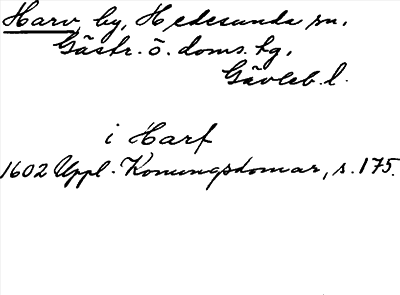 Harv by, Hedesunda sn.
Gästr. ö. doms. tg.
Gävleb. l.
i Harf
1602 Uppl. Konungsdomar, s. 175.